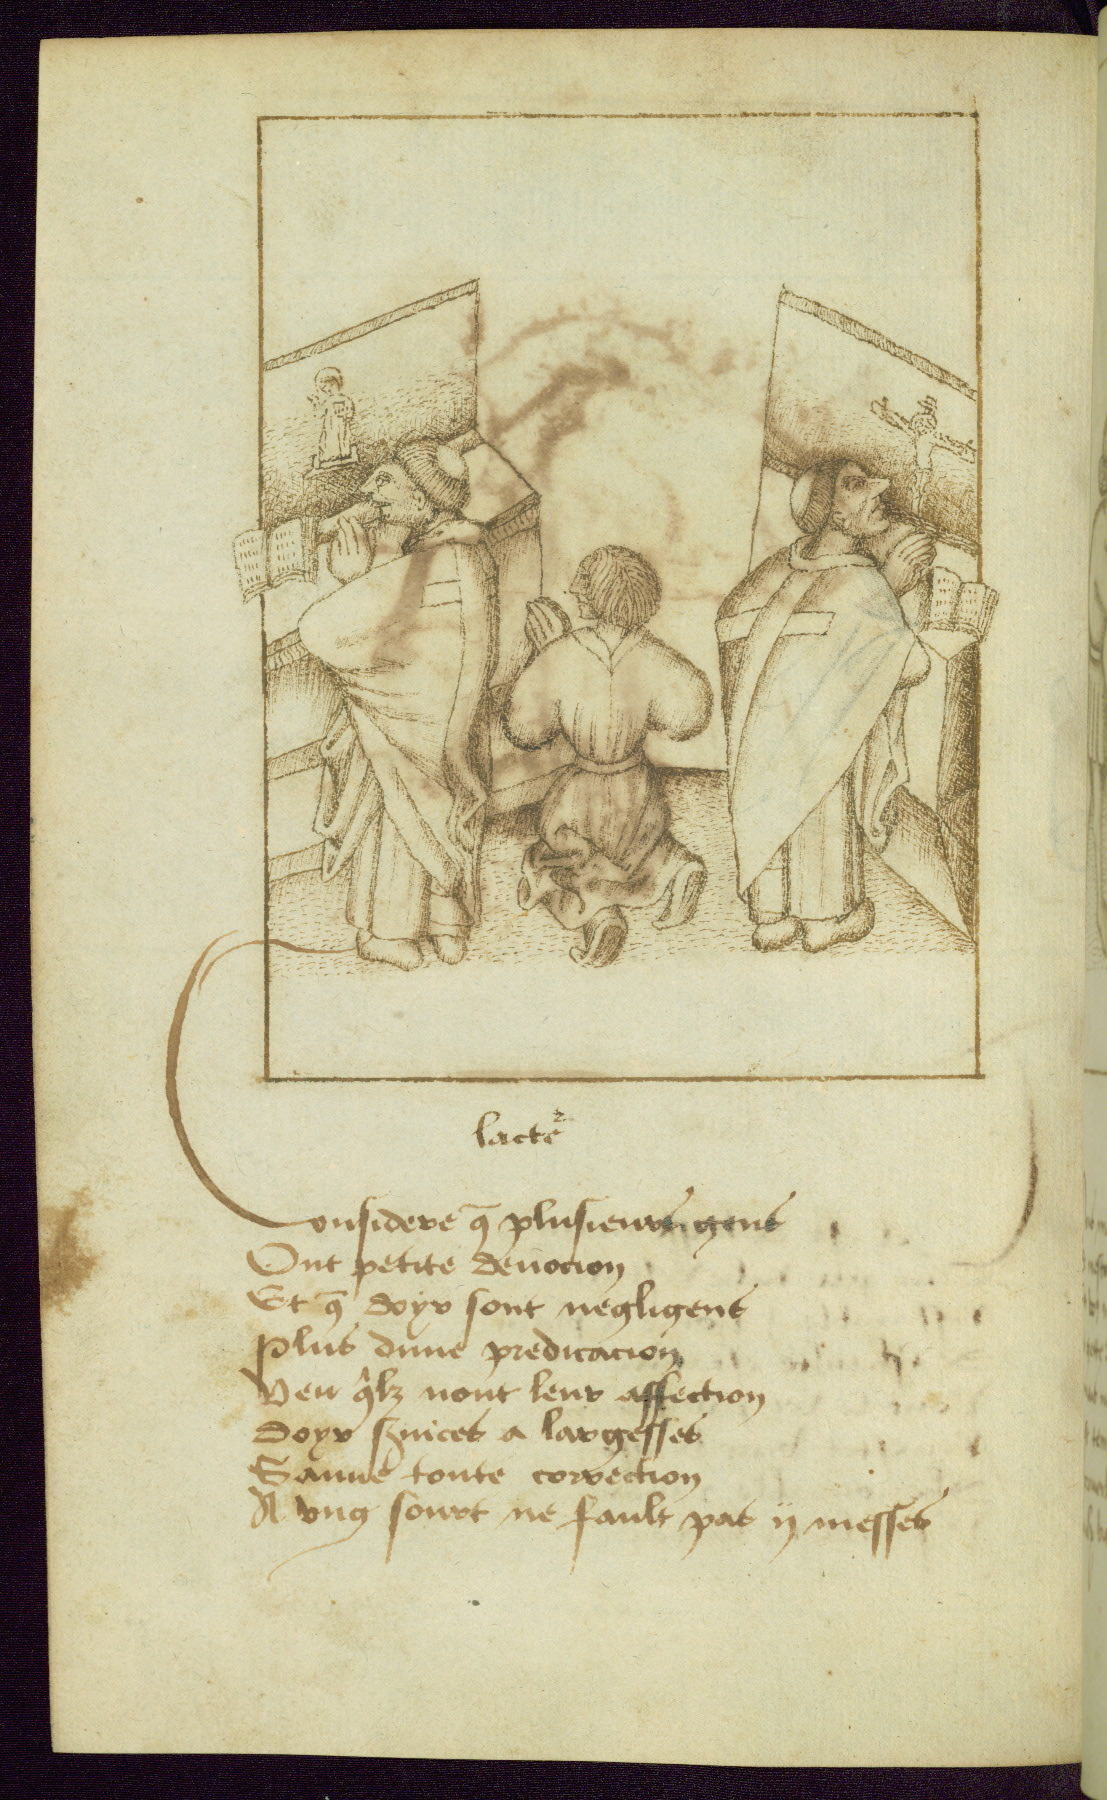 lacteᷣ
Considere q̄ plusieurs gens
Ont petite deuocion
Et q̄ doyr sont negligens
Plus dune predicacion
Veu q̄lz nont leur affection
doyr ẜuices a largesses
Sauue toute correction
A vng sourt ne fault pas ij messes